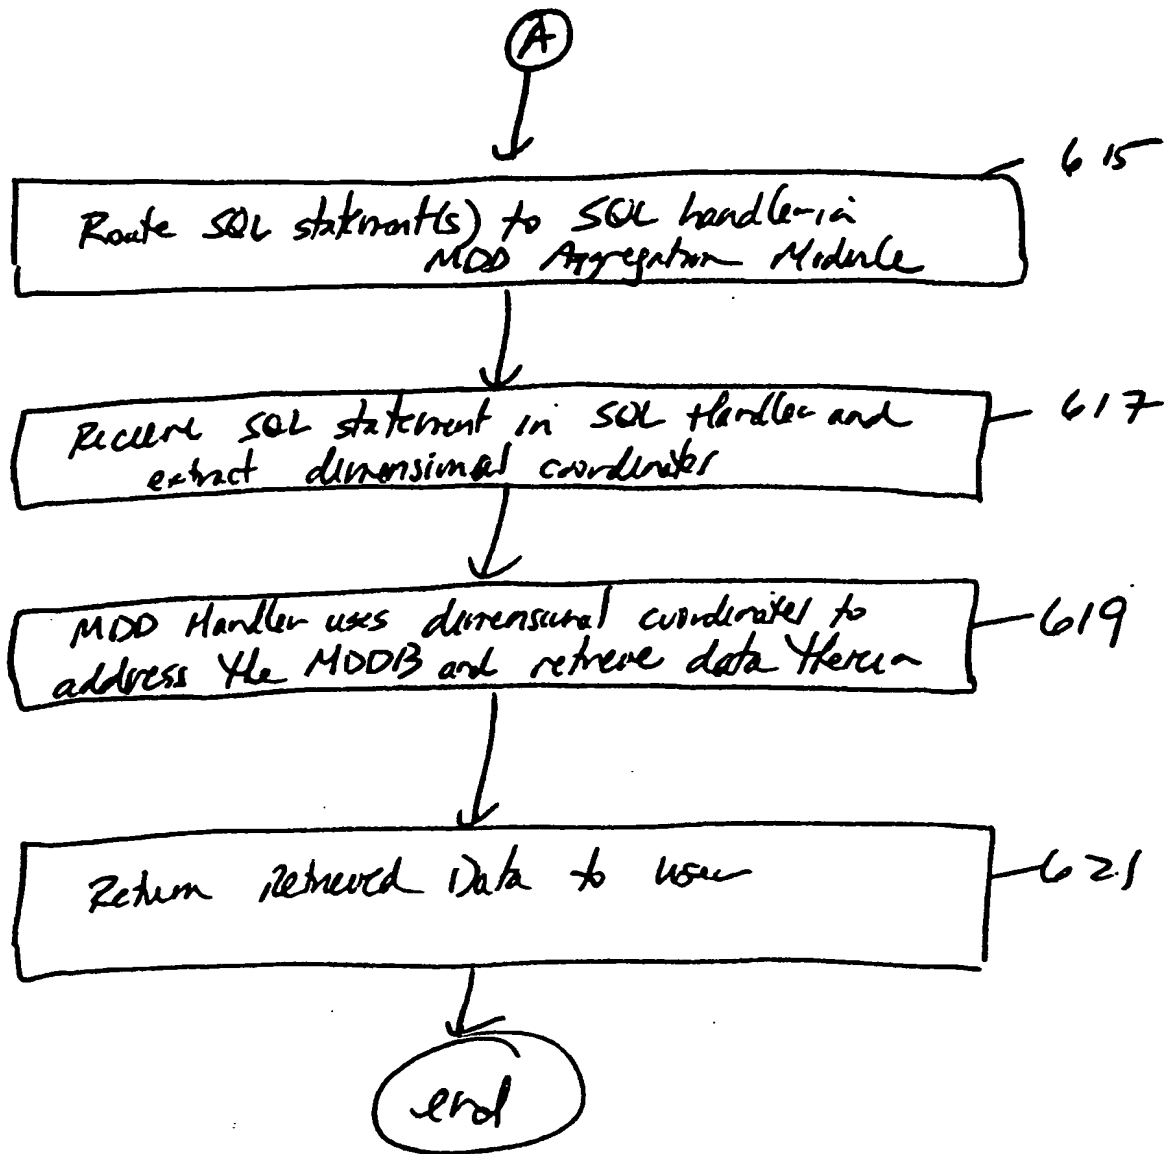 A
615
Route SQL statement(s) to SQL handler in
MDD Aggregation Module
617
Receive SQL statement in SQL Handler and
extract dimensional coordinates
619
MDD Handler uses dimensional coordinates to
address the MDDB and retrieve data therein
621
Return Retrieved Data to user
end